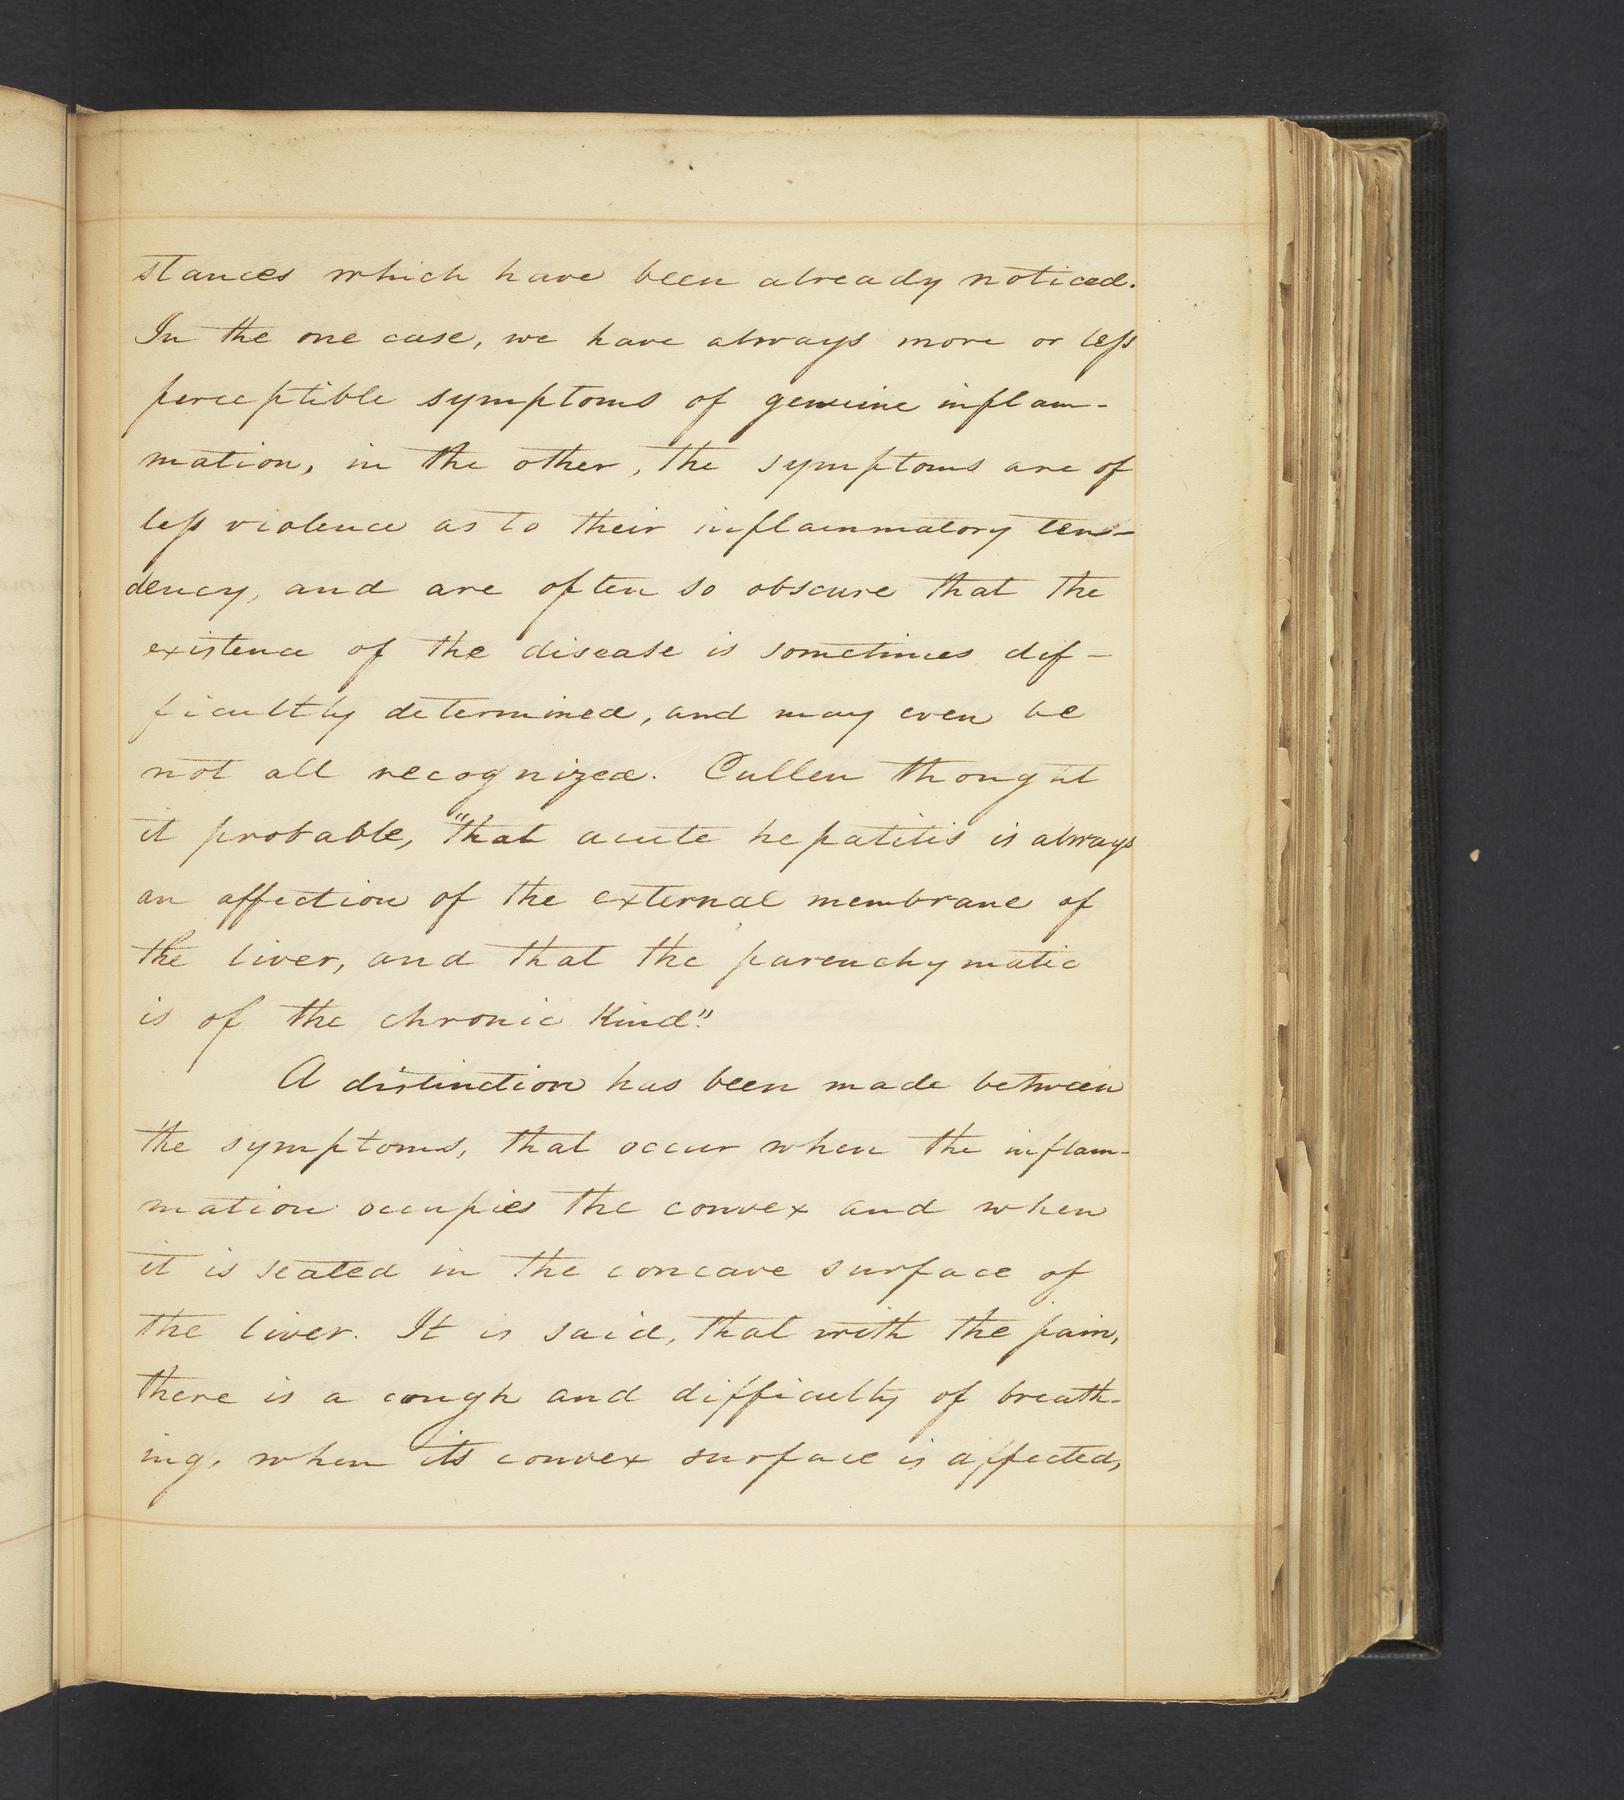 stances which have been already noticed.
In the one case, we have always more or less
perceptible symptoms of genuine inflam-
mation, in the other, the symptoms are of
less violence as to their inflammatory ten-
dency, and are often so obscure that the
existence of the disease is sometimes dif-
ficultly determined, and may even be
not all recognized. Cullen thought
it probable, "that acute hepatitis is always
an affection of the external membrane of
the liver, and that the parenchymatic
is of the chronic kind".
A distinction has been made between
the symptoms, that occur when the inflam-
mation occupies the convex and when
it is seated in the concave surface of
the liver. It is said, that with the pain,
there is a cough and difficulty of breath-
ing, when its convex surface is affected,